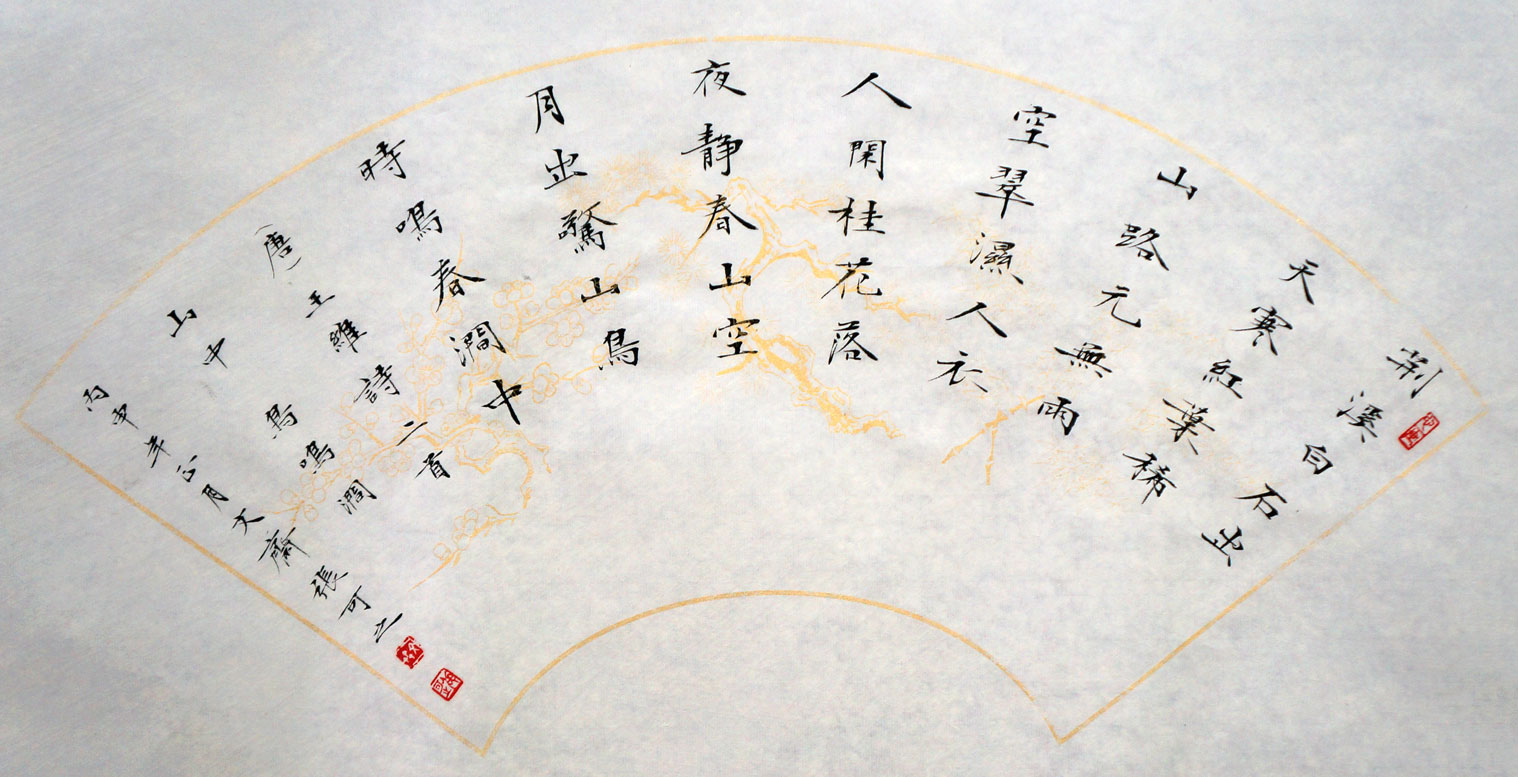 荆溪白石出
天寒紅葉稀
山路元無雨
空翠濕人衣
人閑桂花落
夜静春山空
月出驚山鳥
時鳴春澗中
（唐）王維詩二首
山中 鳥鳴澗
丙申年正月文齋張可之